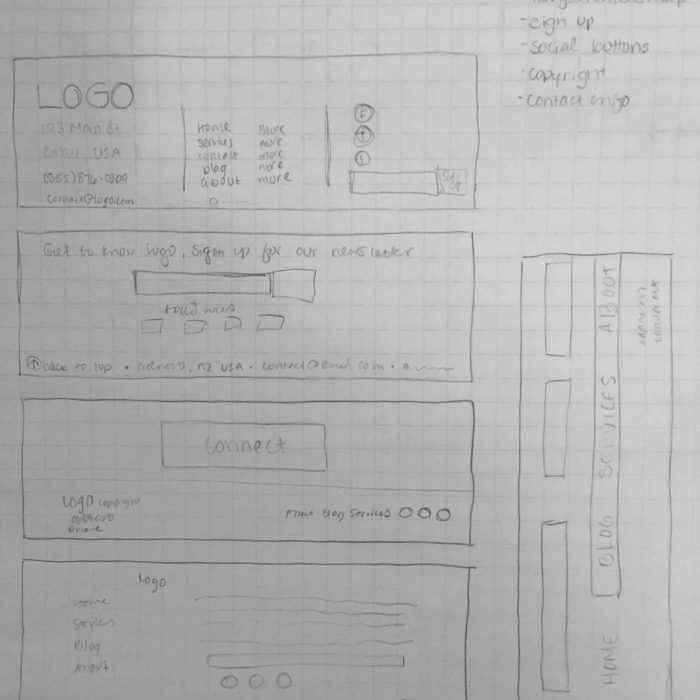 - sign up
- social buttons
- copyright
- contact info
LOGO
123 Main St.
USA
contact@logo.com
Home more
services more
contact more
blog more
about more
Get to know logo, sign up for our newsletter
back to top • address, nz USA • contact@email.com •
Connect
Logo copyright
address
phone
About Blog Services
Logo
Home
Services
Blog
About
HOME BLOG SERVICES ABOUT